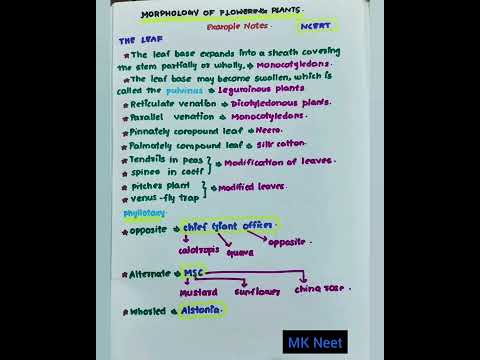 MORPHOLOGY OF FLOWERING PLANTS.
Example Notes
NCERT
THE LEAF
* The leaf base expands into a sheath covering
the stem partially or wholly, → Monocotyledons.
* The leaf base may become swollen, which is
called the pulvinus → Leguminous plants
* Reticulate venation → Dicotyledonous plants.
* Parallel venation → Monocotyledons.
* Pinnately compound leaf → Neem.
* Palmately compound leaf → Silk cotton.
* Tendrils in peas
* spines in cacti } → Modification of leaves.
* pitcher plant
* venus-fly trap } → Modified leaves.
phyllotaxy
* opposite → chief giant officer
calotropis guava opposite.
* Alternate → MSC
mustard sunflower china rose.
* Whorled → Alstonia.
MK Neet